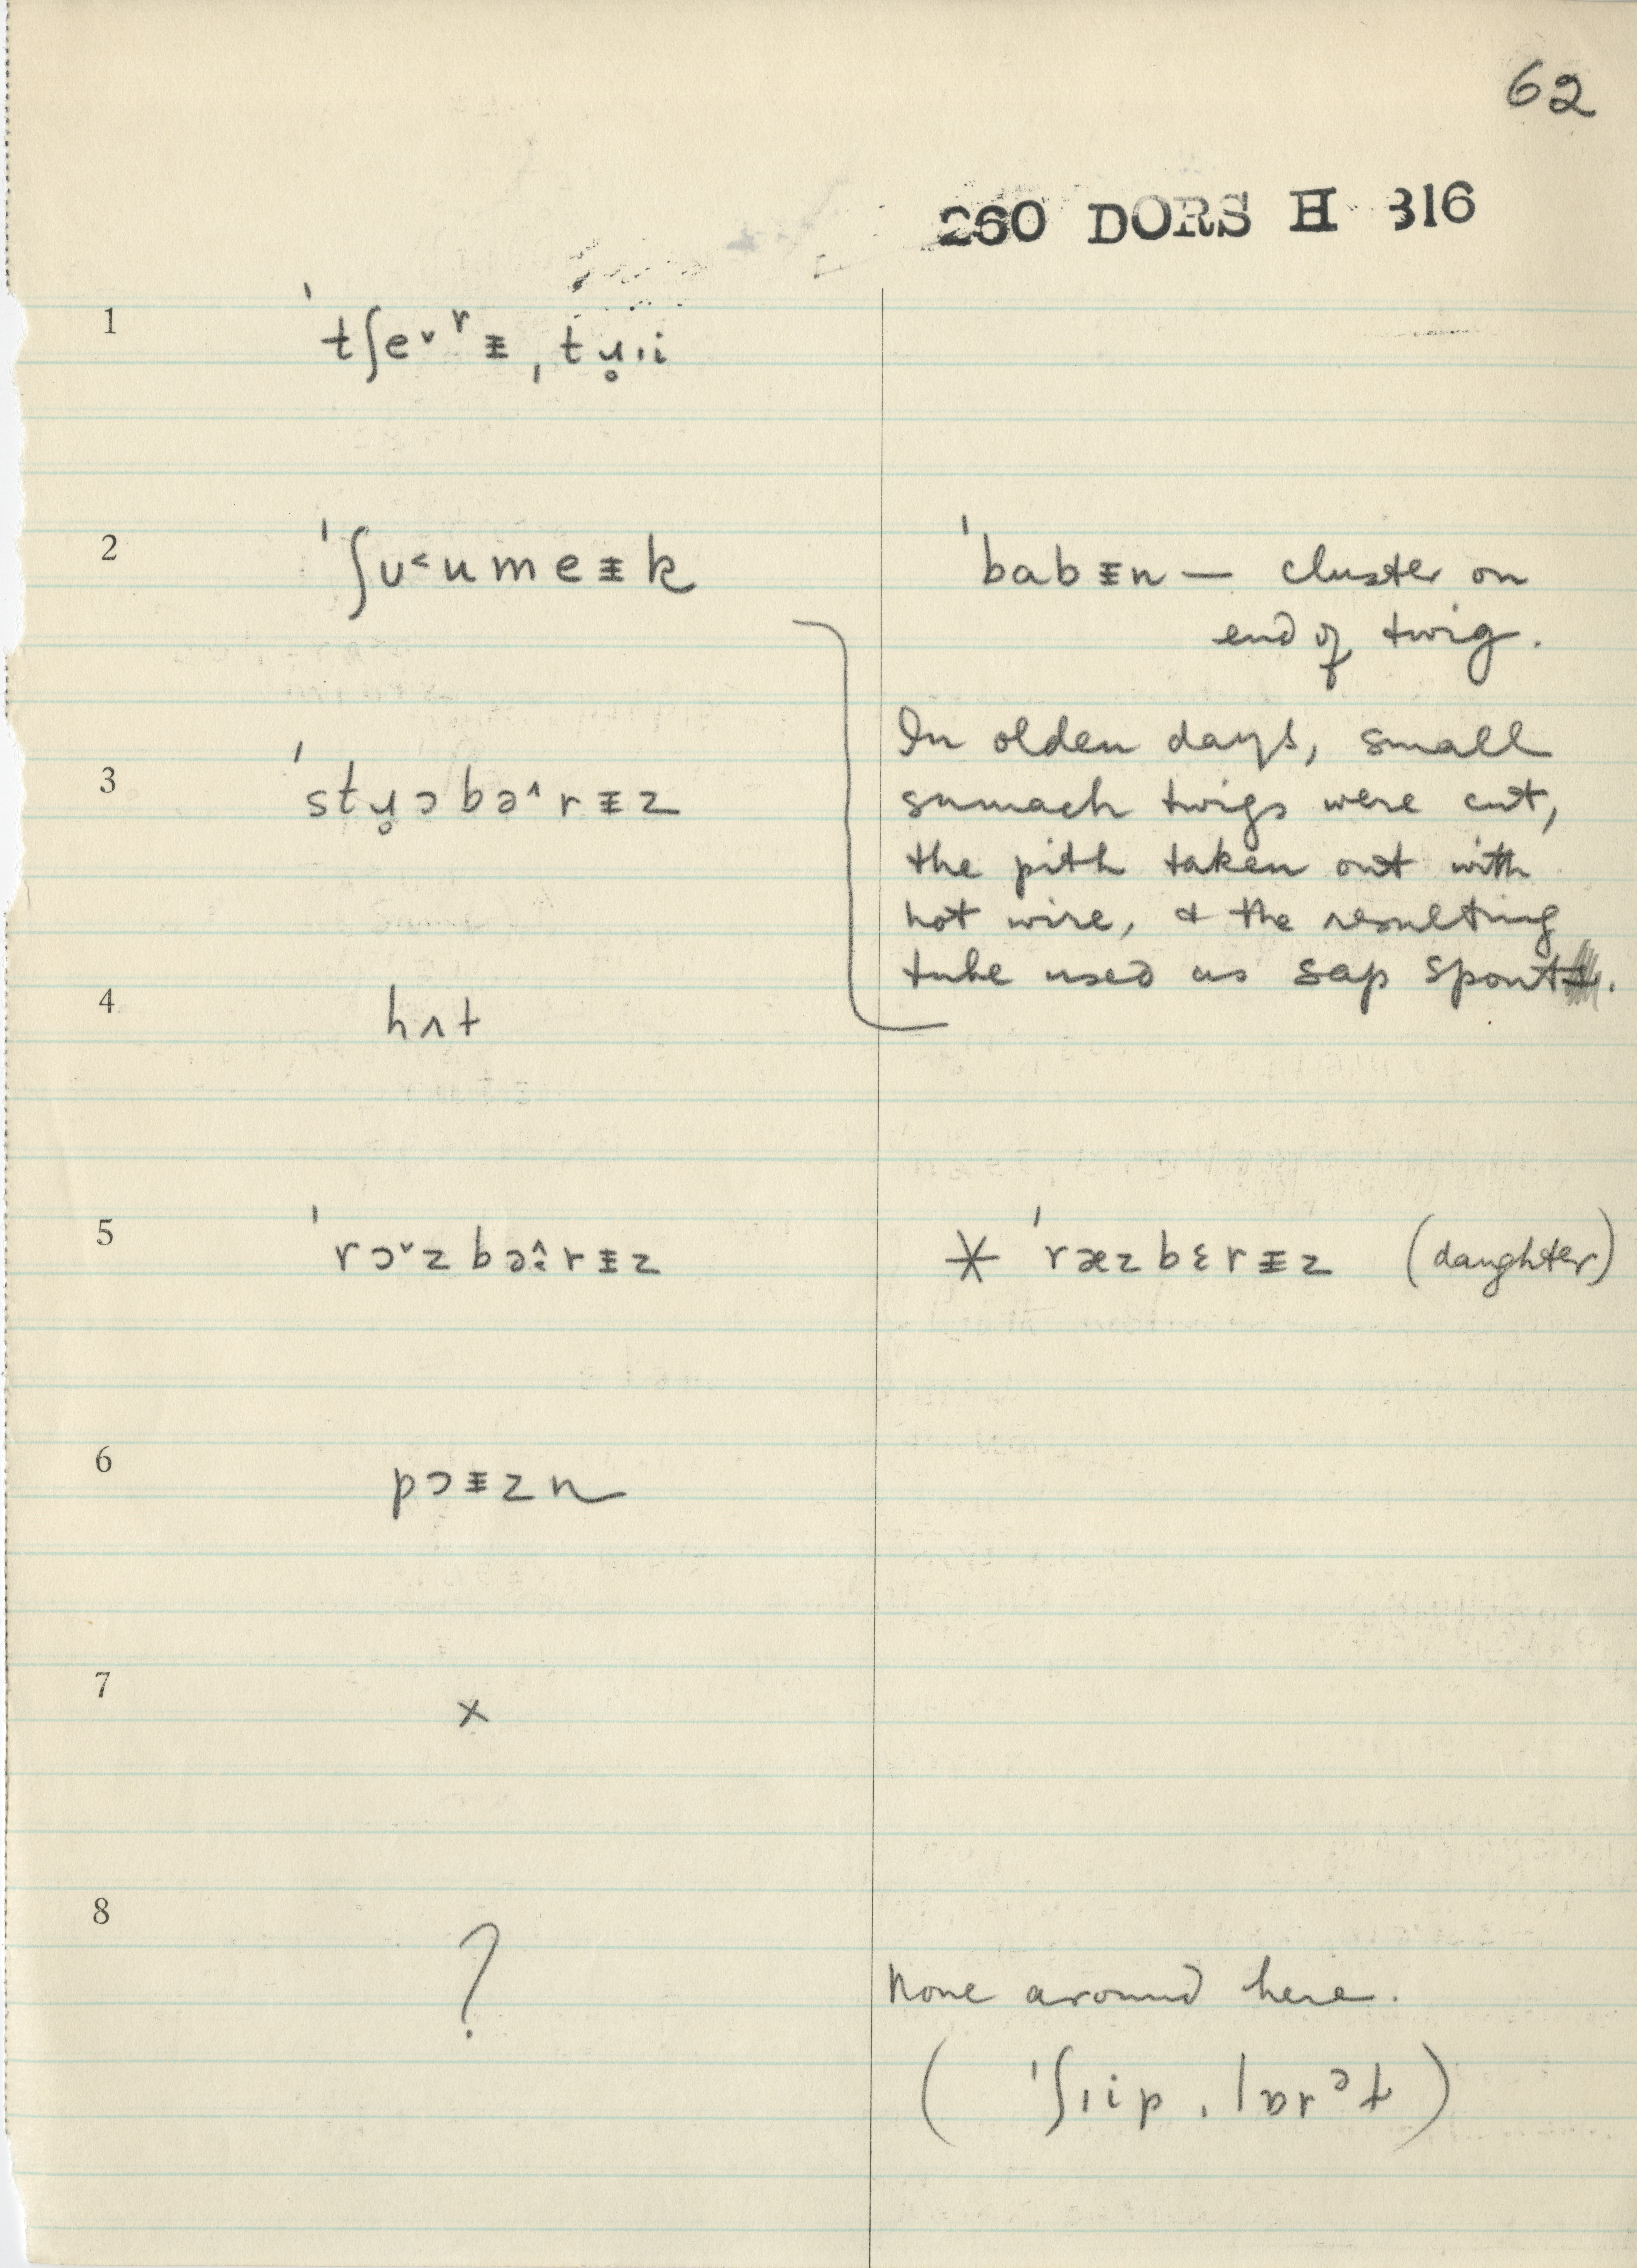 62
260 DORS H 316
1 ˈtʃe˅ʳᵻ ˌtɹ̥ɪi
2 ˈʃʊ˂umeᵻk
ˈbabᵻn — cluster on
end of twig.
In olden days, small
sumach twigs were cut,
the pith taken out with
hot wire, & the resulting
tube used as sap spout.
3 ˈstɹ̥ɔbə˄rᵻz
4 hʌt
5 ˈrɔ˅zbə˄:rᵻz
* ˈræzbɛrᵻz (daughter)
6 pɔᵻzn
7 x
8 ?
None around here.
( ˈʃɪip ˌlɒrᵊt )